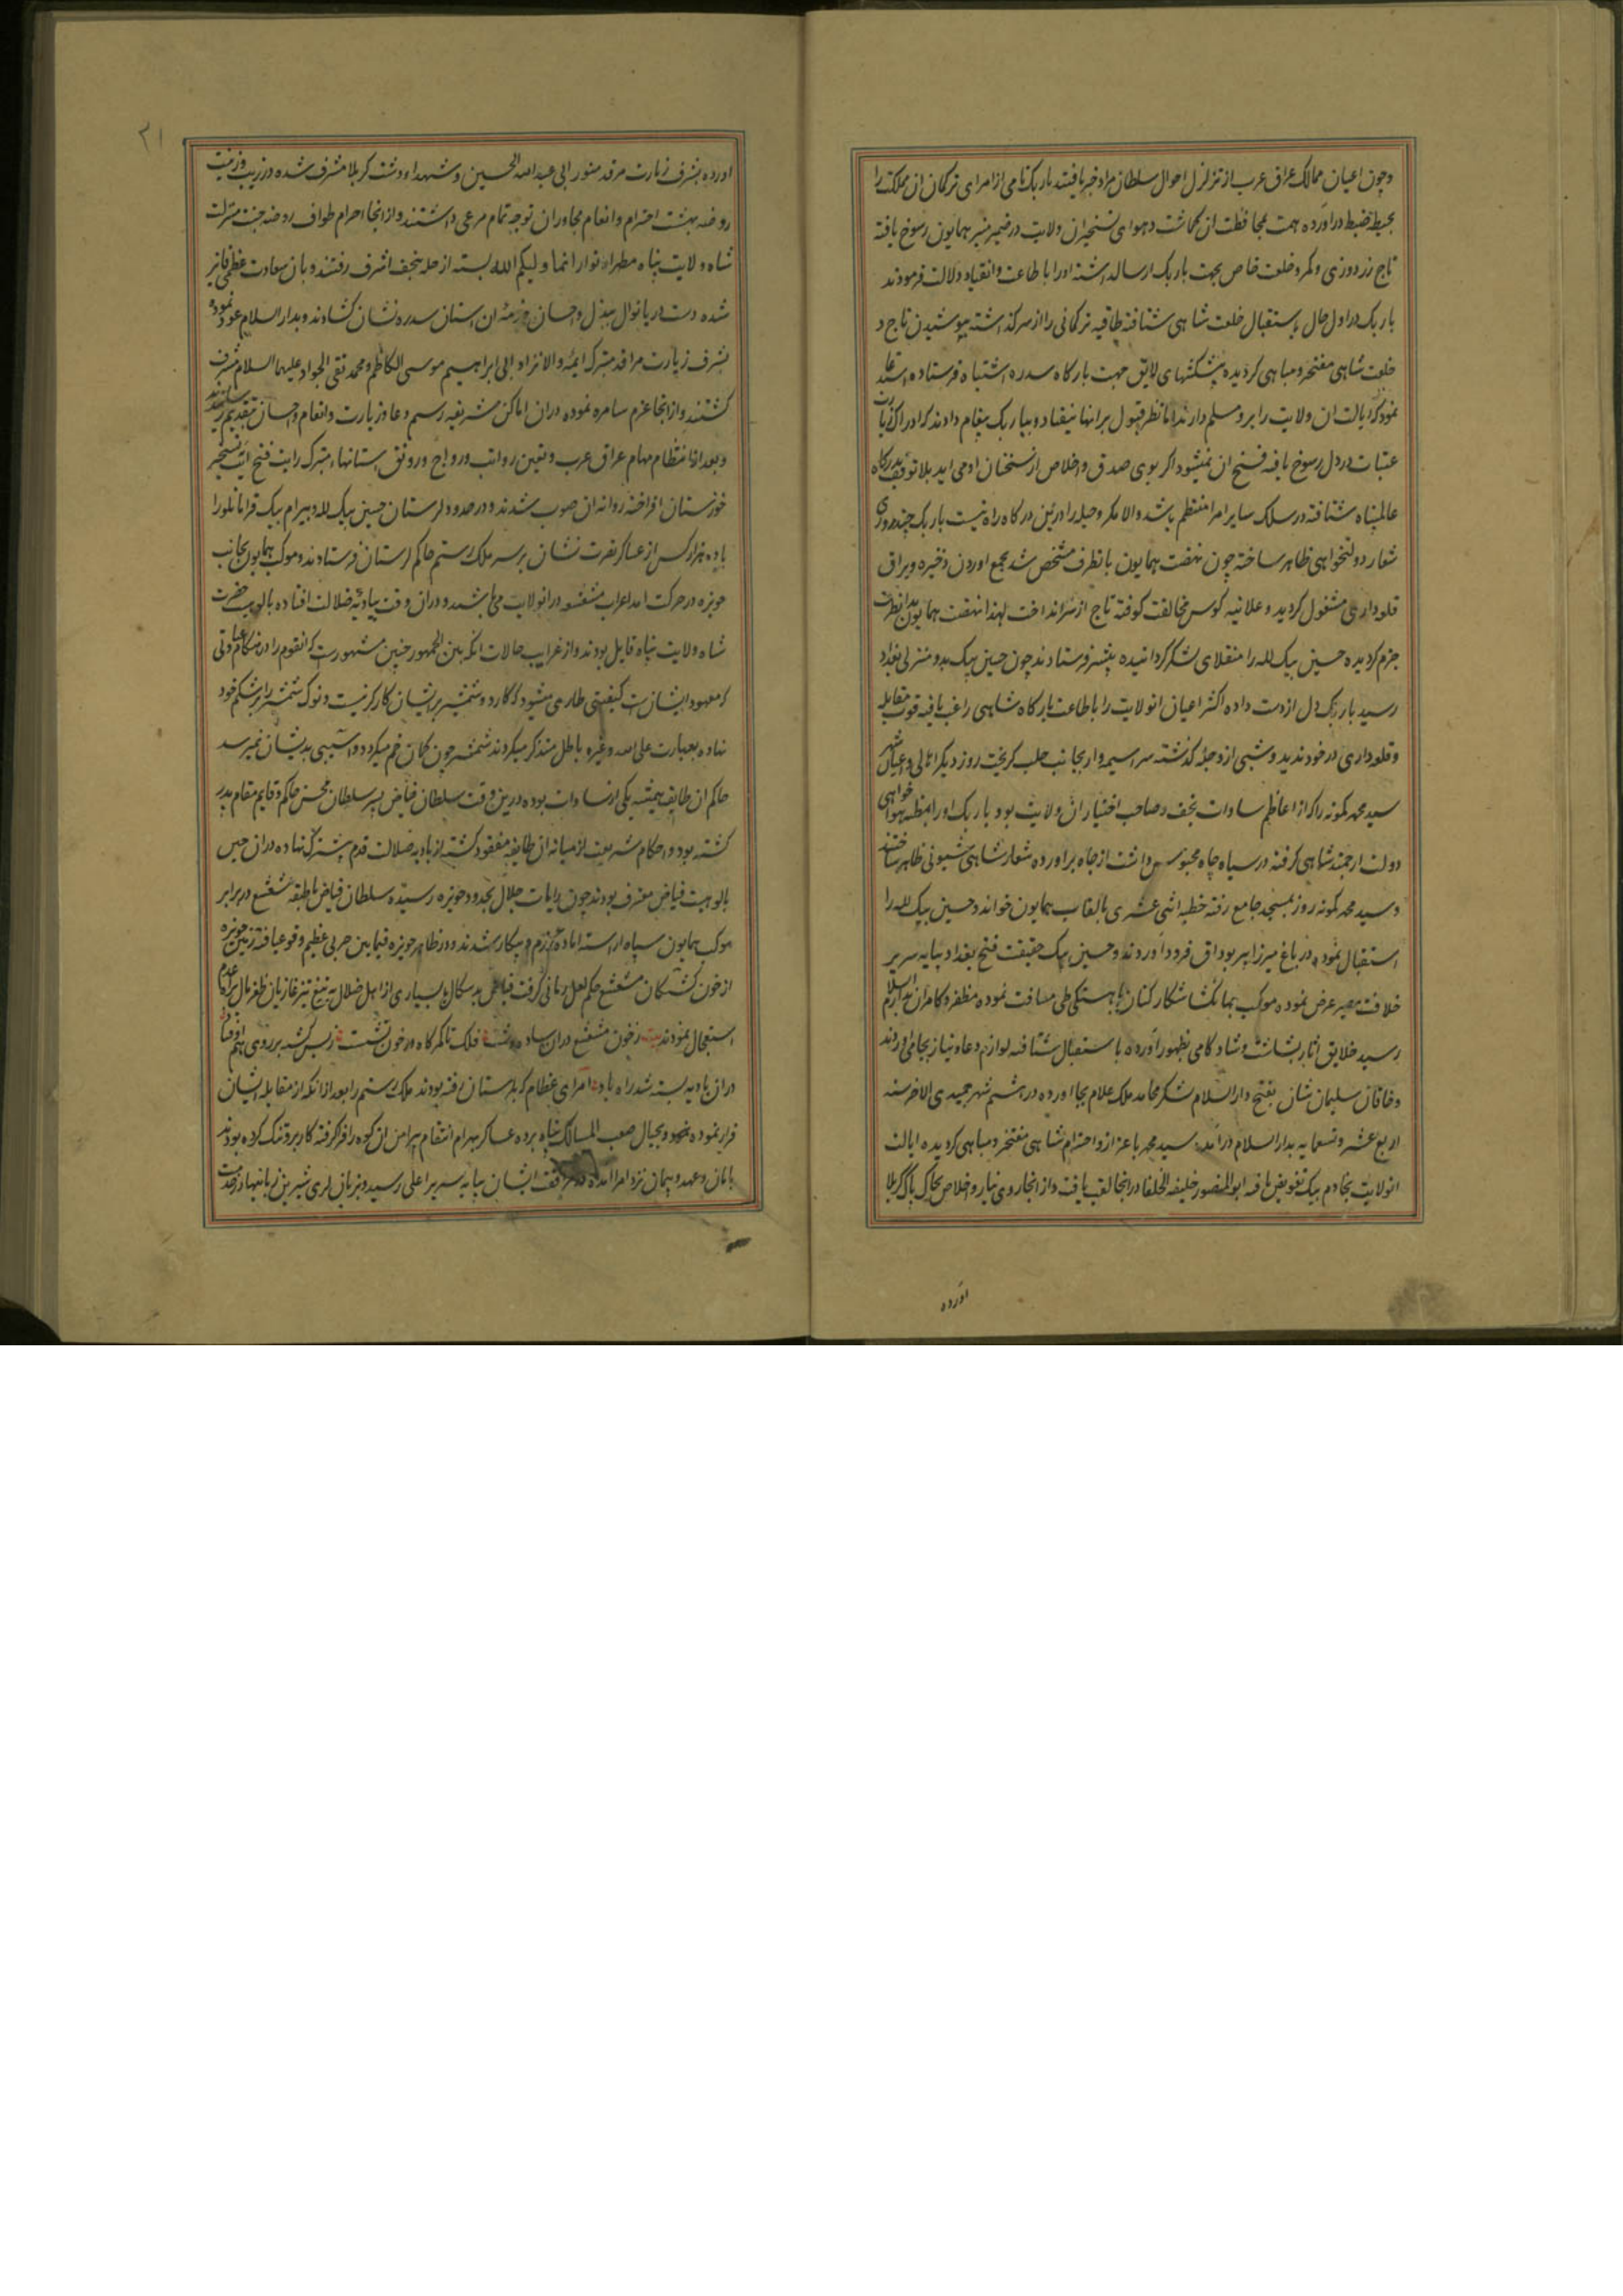 و چون اعیان ممالک عراق عرب از تزلزل احوال سلطان مراد خبر یافتند باریک نامی از امرای ترکمان آن مملکت را
بحیطه ضبط درآورده همت بمحافظت آن گماشت و هوای تسخیر ان ولایت در ضمیر منیر همایون رسوخ یافته
تاج زردوزی و کمر و خلعت خاص بجهت باریک ارسال داشته او را باطاعت و انقیاد دلالت فرمودند
باریک در اول حال باستقبال خلعت شاهی شتافته طاقیه ترکمانی را از سر گذاشته بپوشیدن تاج و
خلعت شاهی مفتخر و مباهی گردیده پیشکشهای لایق جهت بارگاه سدره اشتباه فرستاده استدعا
نمود که ایالت ان ولایت را برو مسلم دارند اما نظر قبول برانها نیفتاد و بباریک پیغام دادند که ادراک زیارت
عتبات در دل رسوخ یافته فسخ ان نمیشود اگر بوی صدق و اخلاص از سخنان او می اید بلا توقف بدرگاه
عالمپناه شتافته در سلک سایر امرا منتظم باشد والا مکر و حیله را درین درگاه راه نیست باریک چند روزی
شعار دولتخواهی ظاهر ساخته چون نهضت همایون بانطرف مشخص شد بجمع اوردن ذخیره و یراق
قلعه داری مشغول گردید و علانیه کوس مخالفت کوفته تاج از سر انداخت لهذا نهضت همایون بدانطرف
جزم گردیده حسین بیک لله را منقلای لشکر گردانیده پیشتر فرستادند چون حسین بیک بدو منزلی بغداد
رسید باریک دل از دست داده اکثر اعیان انولایت را باطاعت بارگاه شاهی راغب یافته قوت مقابله
و قلعه داری در خود ندید و شبی از دجله گذشته سراسیمه وار بجانب حلب گریخت روز دیگر اهالی و اعیان شهر
سید محمد کمونه را که از اعاظم سادات نجف و صاحب اختیار ان ولایت بود و باریک او را بمظنه هواخواهی
دولت ارجمند شاهی گرفته در سیاه چاه محبوس داشت از چاه براورده شعار شاهی شیونی ظاهر ساختند
و سید محمد کمونه روز بمسجد جامع رفته خطبه اثنی عشری بالقاب همایون خواند و حسین بیک لله را
استقبال نموده در باغ میرزا پیربوداق فرود آوردند و حسین بیک حقیقت فتح بغداد بپایه سریر
خلافت مصیر عرض نموده موکب همایون شکارکنان باهستگی طی مسافت نموده مظفر و کامران بدارالسلام
رسید خلایق اثار بشاشت و شادکامی بظهور آورده باستقبال شتافته لوازم دعا و نیاز بجای اوردند
و خاقان سلیمان نشان بفتح دارالسلام شکر محامد ملک علام بجا اورده در ششم شهر جمیدی الاخر سنه
اربع عشر و تسعمایه بدارالسلام درآمد سید محمد باعزاز و احترام شاهی مفتخر و مباهی گردیده ایالت
انولایت بخادم بیک تفویض یافته ابوالمنصور خلیفه الخلفا در انجا لقب یافت و از انجا روی نیاز و اخلاص بخاک پاک کربلا
اورده
۲۱
اورده بشرف زیارت مرقد منور ابی عبدالله الحسین و شهداء دشت کربلا مشرف شده در زیب و زینت
روضه بهشت احترام و انعام مجاوران توجه تمام مرعی داشتند و از انجا احرام طواف روضه جنت منزلت
شاه ولایت پناه مطهر انوار انما ولیکم الله بسته از حله بنجف اشرف رفتند و بان سعادت عظمی فایز
شده دست دریا نوال ببذل و احسان خزمنه ان استان سدره نشان گشادند و بدارالسلام عود نموده
بشرف زیارت مراقد متبرک ایمه والانژاد ابی ابراهیم موسی الکاظم و محمد تقی الجواد علیهما السلام مشرف
گشتند و از انجا عزم سامره نموده دران اماکن شریفه رسم دعا و زیارت و انعام و احسان بتقدیم رسانیدند
و بعد از انتظام مهام عراق عرب و تعین رواتب و رواج و رونق استانهاء متبرک رایت فتح ایت بتسخیر
خوزستان افراخته روانه ان صوب شدند و در حدود لرستان حسین بیک لله و بیرام بیک قرامانلو را
با ده هزار کس از عساکر نصرت نشان بر سر ملک رستم حاکم لرستان فرستادند و موکب همایون بجانب
حویزه در حرکت امد اعراب مشعشع در انولایت می باشند و دران وقت ببادیه ضلالت افتاده بالوهیت حضرت
شاه ولایت پناه قایل بودند و از غرایب حالات انکه بین الجمهور چنین مشهورست که انقوم را در هنگام عبادتی
که معهود ایشانست کیفیتی طاری میشود که کارد و شمشیر بر ایشان کارگر نیست و نوک شمشیر را بر شکم خود
نهاده بعبارت علی الله و غیره باطل متذکر میگردند شمشیر چون کمان خم میگردد و اسیبی بدیشان نمیرسد
حاکم ان طایفه همیشه یکی از سادات بوده درین وقت سلطان فیاض پسر سلطان محسن حاکم و قایم مقام پدر
گشته بود و احکام شریعت از میانه ان طایفه مفقود گشته از بادیه ضلالت قدم پیشترک نهاده دران حین
بالوهیت فیاض معترف بودند چون رایات جلال بحدود حویزه رسیده سلطان فیاض باطبقه مشعشع در برابر
موکب همایون سپاه اراسته اماده رزم و پیکار شدند و در ظاهر حویزه فیمابین حربی عظیم وقوع یافته زمین حویزه
از خون کشتگان مشعشع حکم لعل رمانی گرفت فیاض بدسگال با بسیاری از اهل ضلال به تیغ تیز غازیان ظفرمال براه عدم
استعجال نمودند بیت ز خون مشعشع دران ساده دشت فلک تا کمرگاه در خون نشست ز بس کشته بر روی هم اوفتاد
دران بادیه بسته شد راه باد امرای عظام که بلرستان رفته بودند ملک رستم را بعد از انکه از مقابله ایشان
فرار نموده بجبال صعب المسالک پناه برده عساکر بهرام انتقام پیرامن ان کوه را فرا گرفته کار برو تنگ کرده بودند
بامان و عهد و پیمان نزد امرا امده در مرافقت ایشان بپایه سریر اعلی رسید و بزبان لری شیرین زبانیها در خدمت